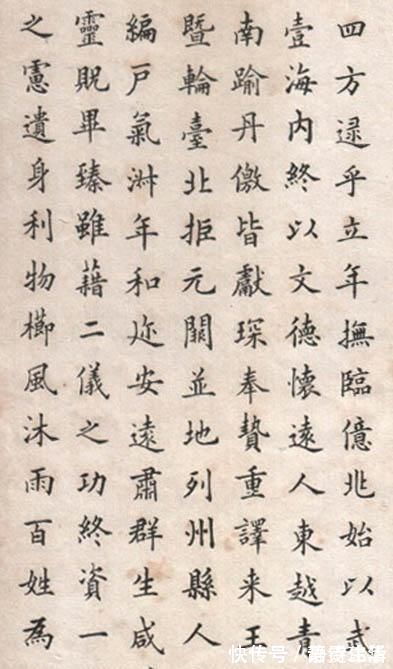 四方逯乎立年撫臨億兆始以武
壹海内終以文德懷遠人東越青
南踰丹儌皆獻琛奉贄重譯来王
暨輪臺北拒元闕並地列州縣人
編户氣淋年和迩安遠肅群生咸
靈貺畢臻雖藉二儀之功終資一
之慮遺身利物櫛風沐雨百姓為
快传号/